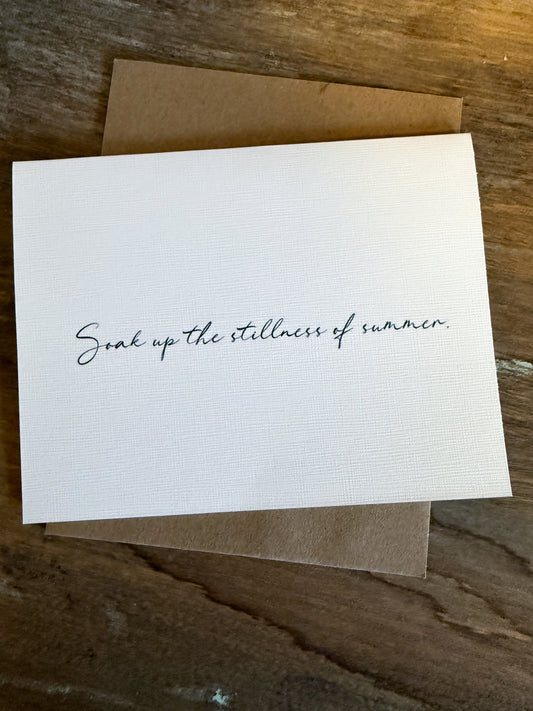 Soak up the stillness of summer.